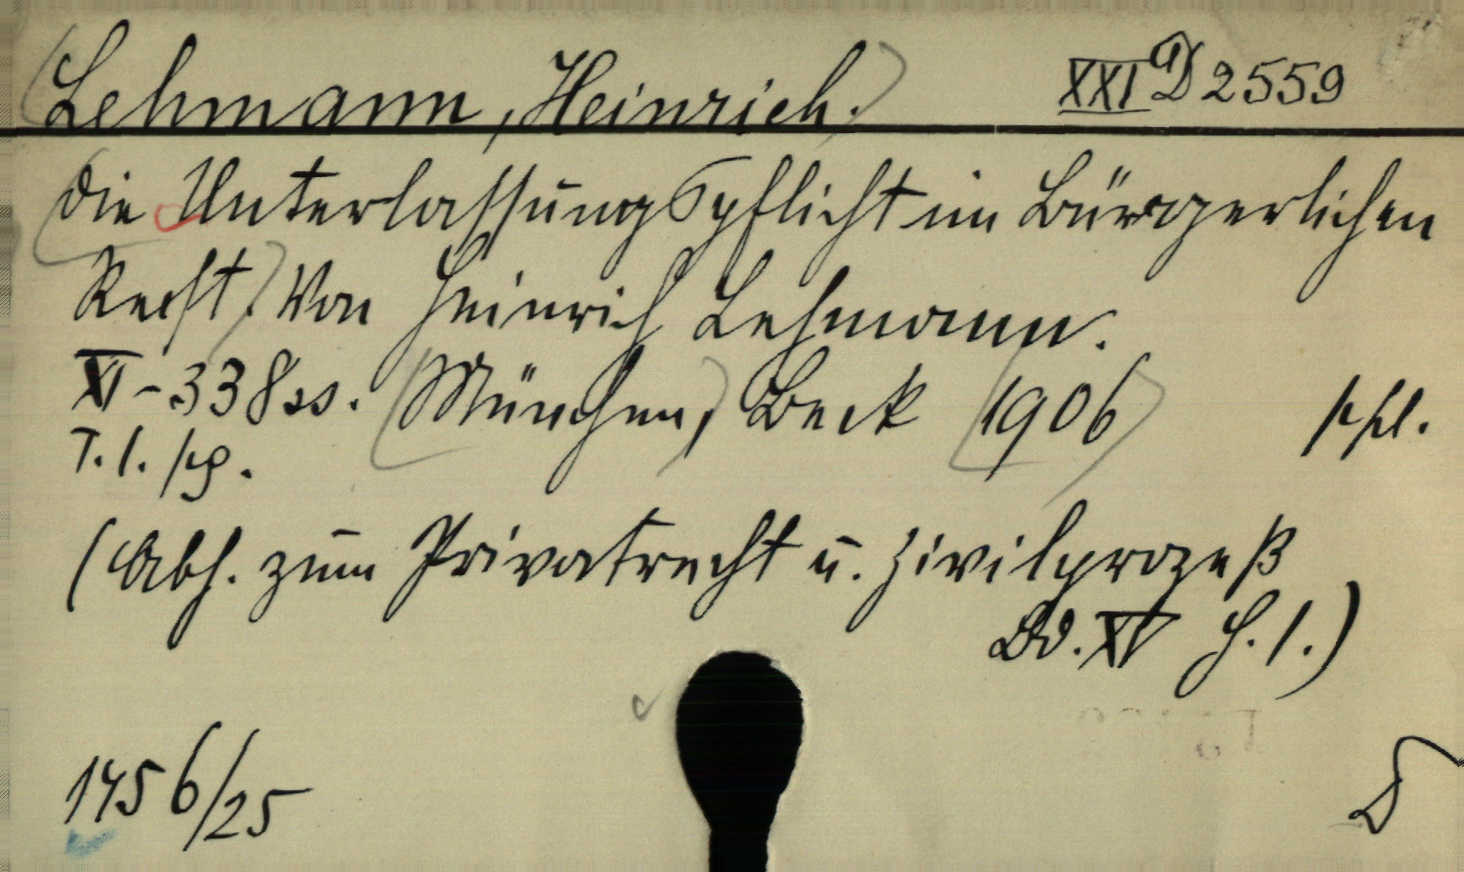 Lehmann, Heinrich. XXI D 2559
Die Unterlassungspflicht im Bürgerlichen
Recht. Von Heinrich Lehmann.
XI-338 ss. München, Beck 1906
T. I.
(Abh. zum Privatrecht u. Zivilprozeß
Bd. XV H. 1.)
1456/25